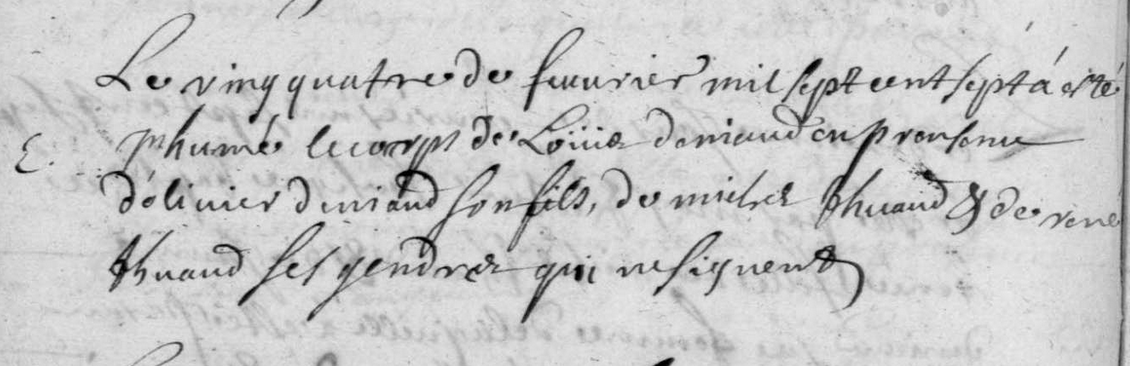 Le vingquatre de feuvrier mil sept cent sept á esté
E. Jnhumé le corps de Loüise deniaud en presense
d'olivier deniaud son fils, de michel thuaud & de rené
thuaud ses gendres qui ne signent